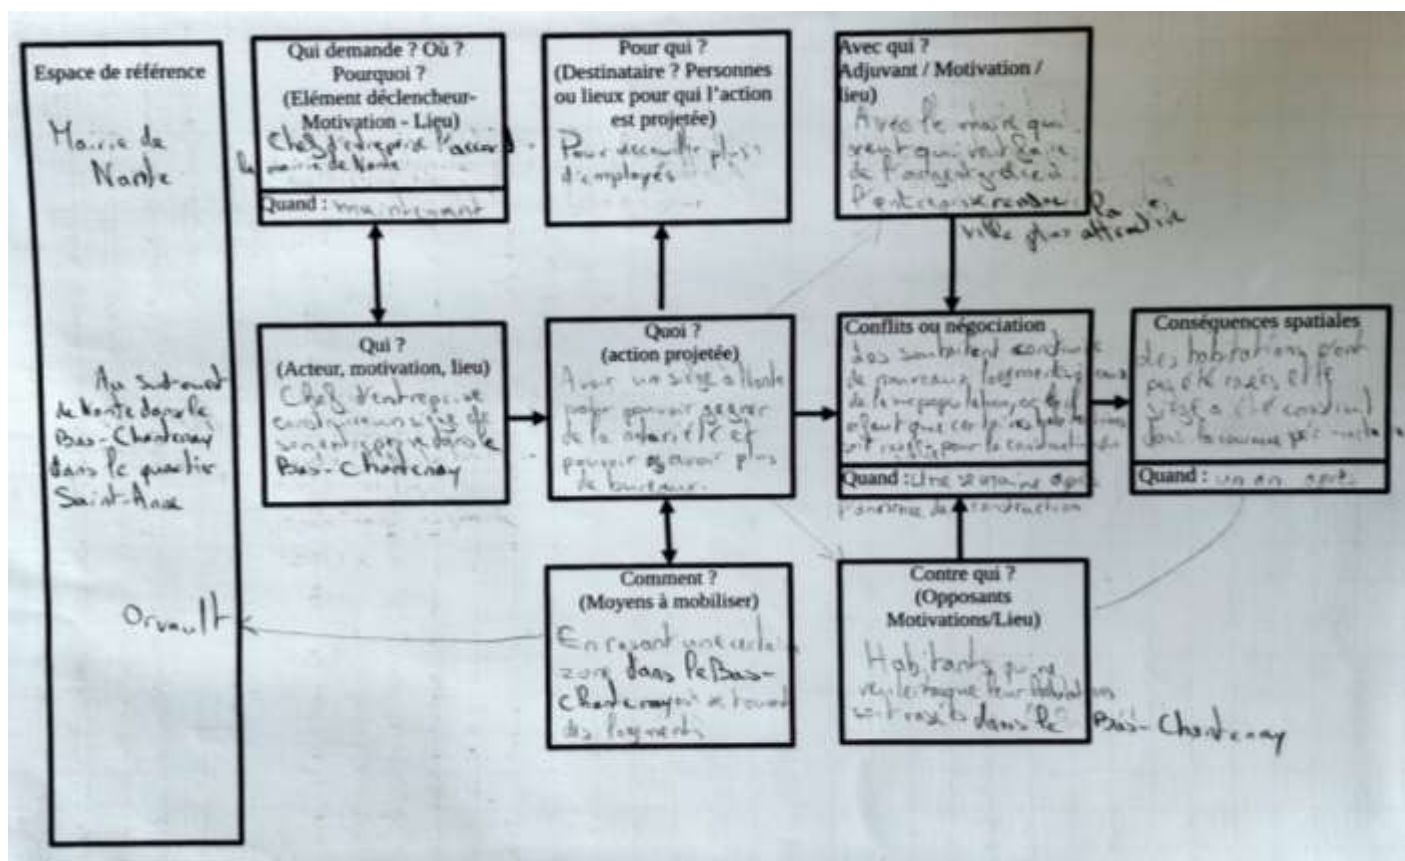 Espace de référence
Mairie de
Nante
Au Sud-ouest
de Nante dans le
Bas-Chantenay
dans le quartier
Saint-Anne
Orvault
Qui demande ? Où ?
Pourquoi ?
(Elément déclencheur-
Motivation - Lieu)
Chef d'entreprise
la mairie de Nante
Quand : maintenant
Pour qui ?
(Destinataire ? Personnes
ou lieux pour qui l'action
est projetée)
Pour accueillir plus
d'employés
Avec qui ?
Adjuvant / Motivation /
lieu)
Avec le maire qui
veut qui veut faire
de l'argent grâce à
l'entreprise rendre la
ville plus attractive
Qui ?
(Acteur, motivation, lieu)
Chef d'entreprise
construire un siège de
son entreprise dans le
Bas-Chantenay
Quoi ?
(action projetée)
Avoir un siège à Nante
pour pouvoir gagner
de la notoriété et
pouvoir avoir plus
de bureaux.
Conflits ou négociation
souhaitent construire
de nouveaux logements
de la population
que certaines habitations
soit pour la construction du
Quand : Une semaine après
l'annonce de construction
Conséquences spatiales
Des habitations n'ont
pas été rasés et le
siège a été construit
dans
Quand : un an après
Comment ?
(Moyens à mobiliser)
En rasant une certaine
zone dans le Bas-
Chantenay où se trouve
des logements
Contre qui ?
(Opposants
Motivations/Lieu)
Habitants qui ne
veulent que leur habitations
soit rasés dans le Bas-Chantenay